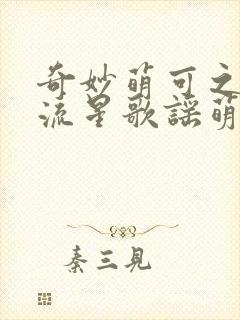 奇妙萌可之
流星歌谣萌
秦三見